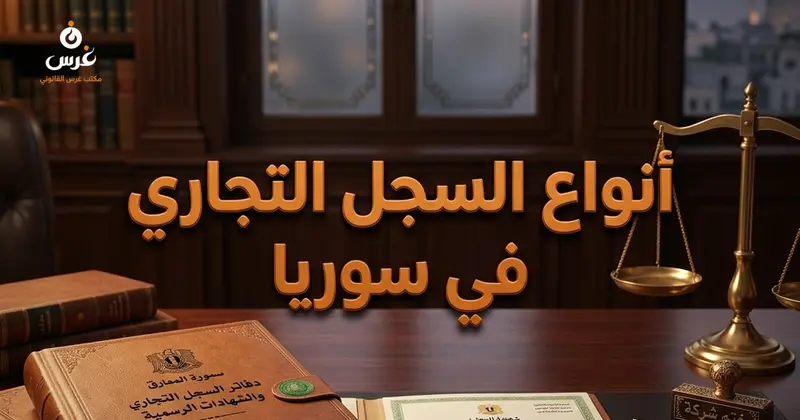 غرس
مكتب غرس القانوني
أنواع السجل التجاري
في سوريا
سورة المعارق
دفاتر السجل التجاري
والشهادات الرسمية
شركة